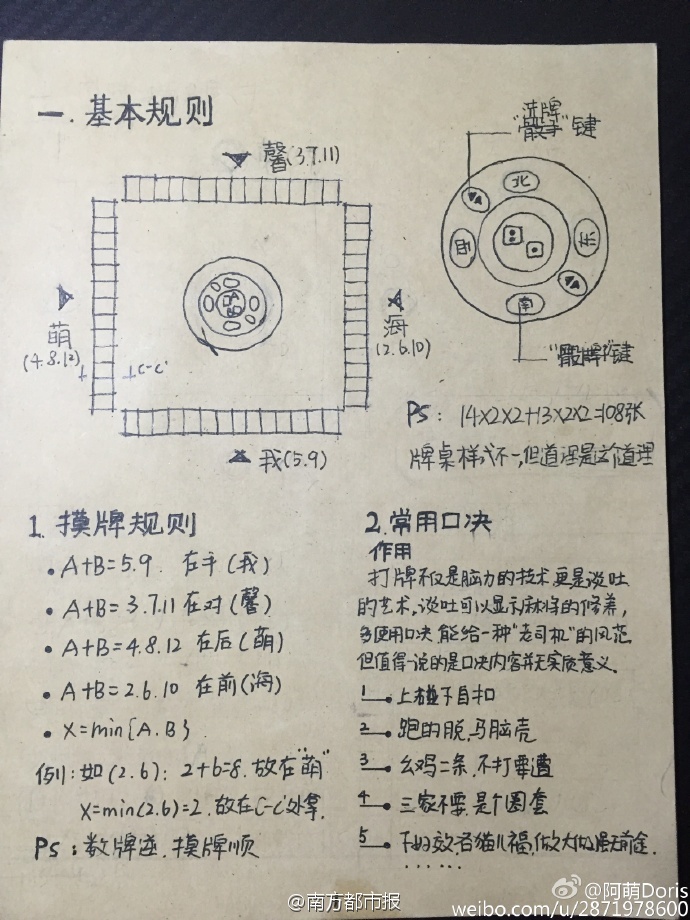 一. 基本规则
馨(3.7.11)
萌
(4.8.12)
C-C'
海
(2.6.10)
我(5.9)
洗牌
"骰子"键
北
西
东
南
"骰牌"键
PS: 14×2×2+13×2×2=108张
牌桌样式不一,但道理是这个道理
1. 摸牌规则
• A+B=5.9. 在手(我)
• A+B=3.7.11在对(馨)
• A+B=4.8.12在后(萌)
• A+B=2.6.10在前(海)
• X=min{A.B}
例1:如(2.6): 2+6=8.放在"萌"
X=min(2.6)=2.放在C-C'处拿.
Ps:数牌逆.摸牌顺
2.常用口决
作用
打牌不仅是脑力的技术更是谈吐
的艺术,谈吐可以显示麻将的修养,
多使用口决 能给一种"老司机"的风范
但值得一说的是口决内容并无实质意义.
1 上碰下自扣
2 跑的脱,马脑壳
3 幺鸡二条,不打要遭
4 三家不要,是个圈套
5 前途.
......
@南方都市报
@阿萌Doris
weibo.com/u/2871978600